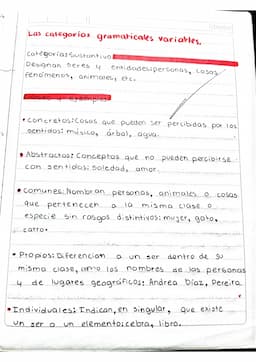 Las categorías gramaticales variables.
Categoría: Sustantivo
Designan seres y entidades: personas, cosas
fenómenos, animales, etc.
• Concretos: Cosas que pueden ser percibidas por los
sentidos: música, árbol, agua.
• Abstractos: Conceptos que no pueden percibirse
con sentidos: Soledad, amor.
• Comunes: Nombran personas, animales o cosas
que pertenecen a la misma clase o
especie sin rasgos distintivos: mujer, gato,
carro.
• Propios: Diferencian a un ser dentro de su
misma clase, como los nombres de las personas
y de lugares geográficos: Andrea Díaz, Pereira
• Individuales: Indican, en singular, que existe
un ser o un elemento: cebra, libro.